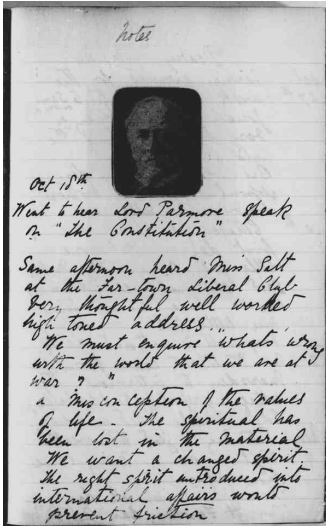 Notes
Oct 18th
Went to hear Lord Parmore speak
on "The Constitution"
Same afternoon heard Miss Salt
at the Far-town Liberal Club
very thoughtful well worked
high toned address.
"We must enquire whats wrong
with the world that we are at
war?"
a misconception of the values
of life. The spiritual has
been lost in the material
We want a changed spirit
The right spirit introduced into
international affairs would
prevent friction